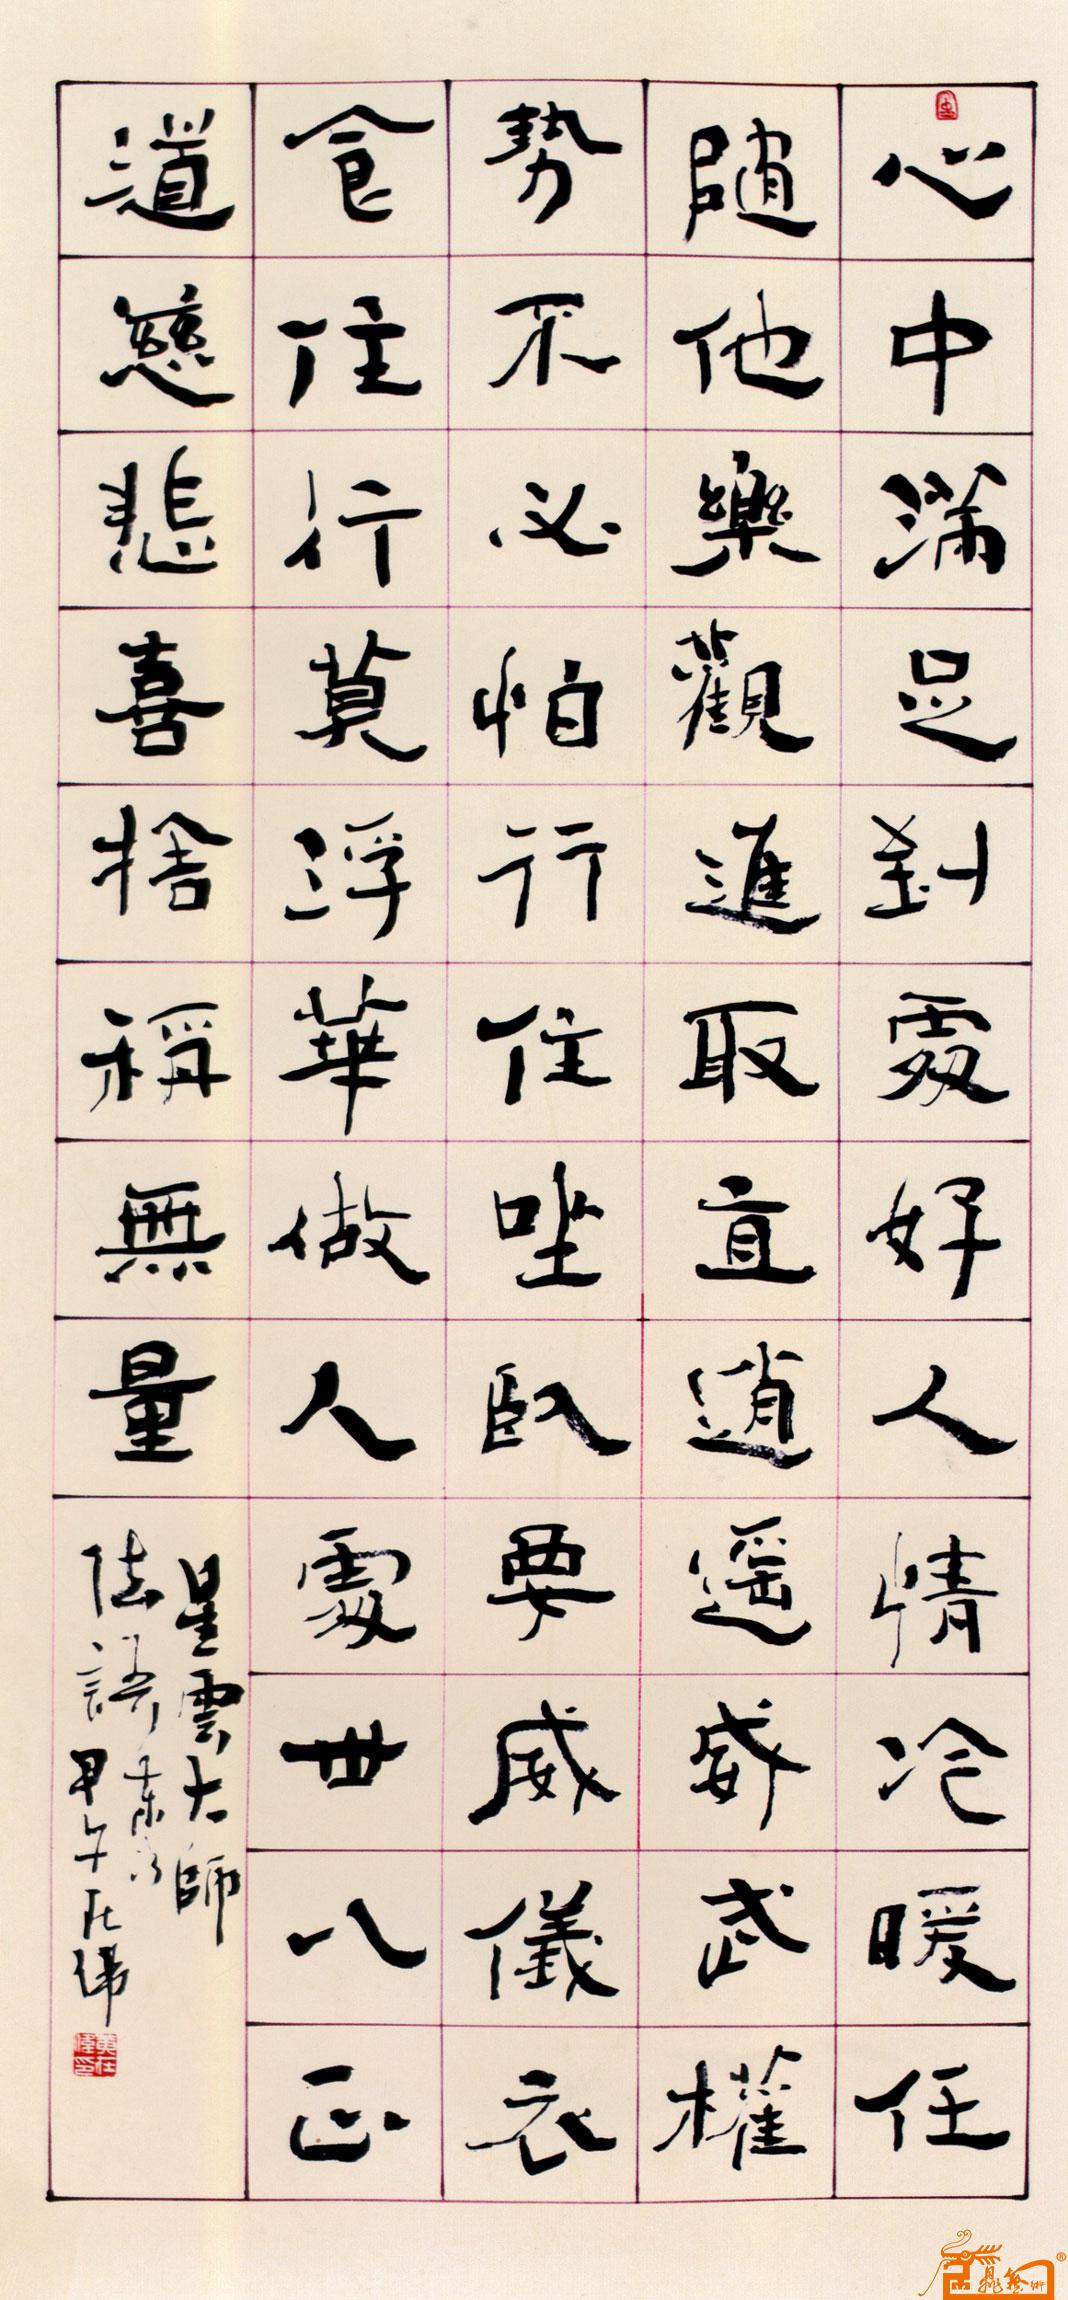 心中滿足到處好人情冷暖任
隨他樂觀進取直逍遥威武權
勢不必怕行住坐臥要威儀衣
食住行莫浮華做人處世八正
道慈悲喜捨稱無量
星雲大師
法語
甲午